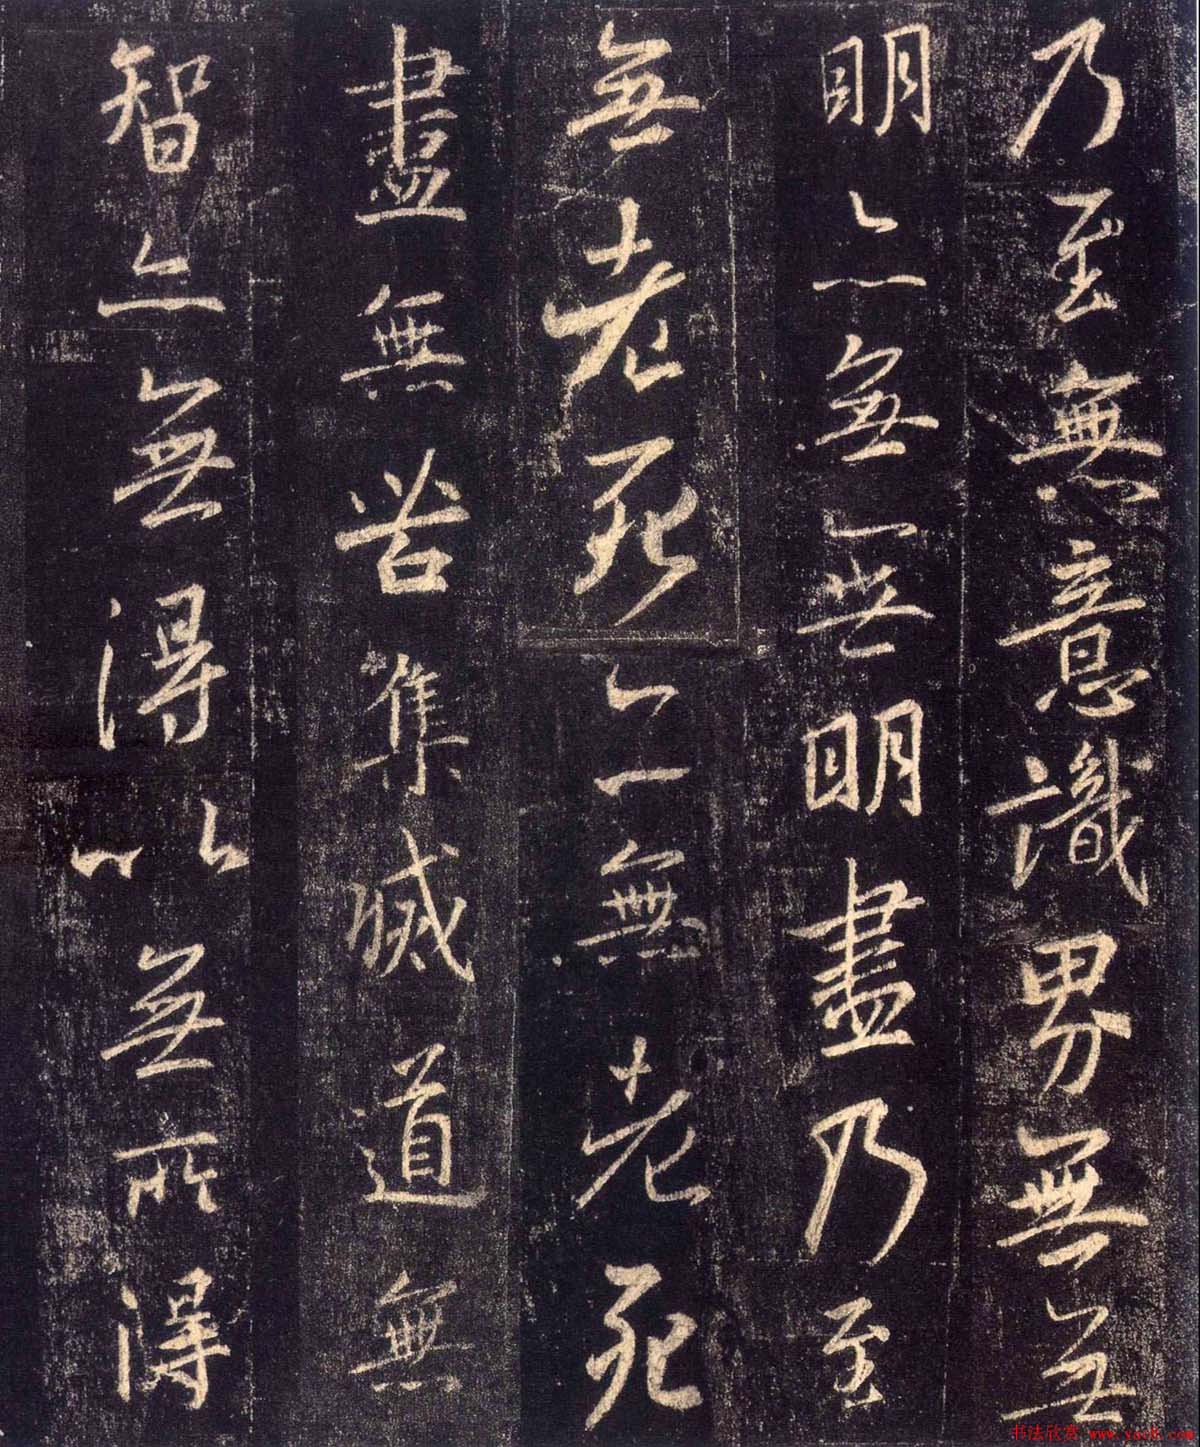 乃至無意識界無無
明亦無無明盡乃至
無老死亦無老死
盡無苦集滅道無
智亦無得以無所得
书法欣赏 www.yac8.com